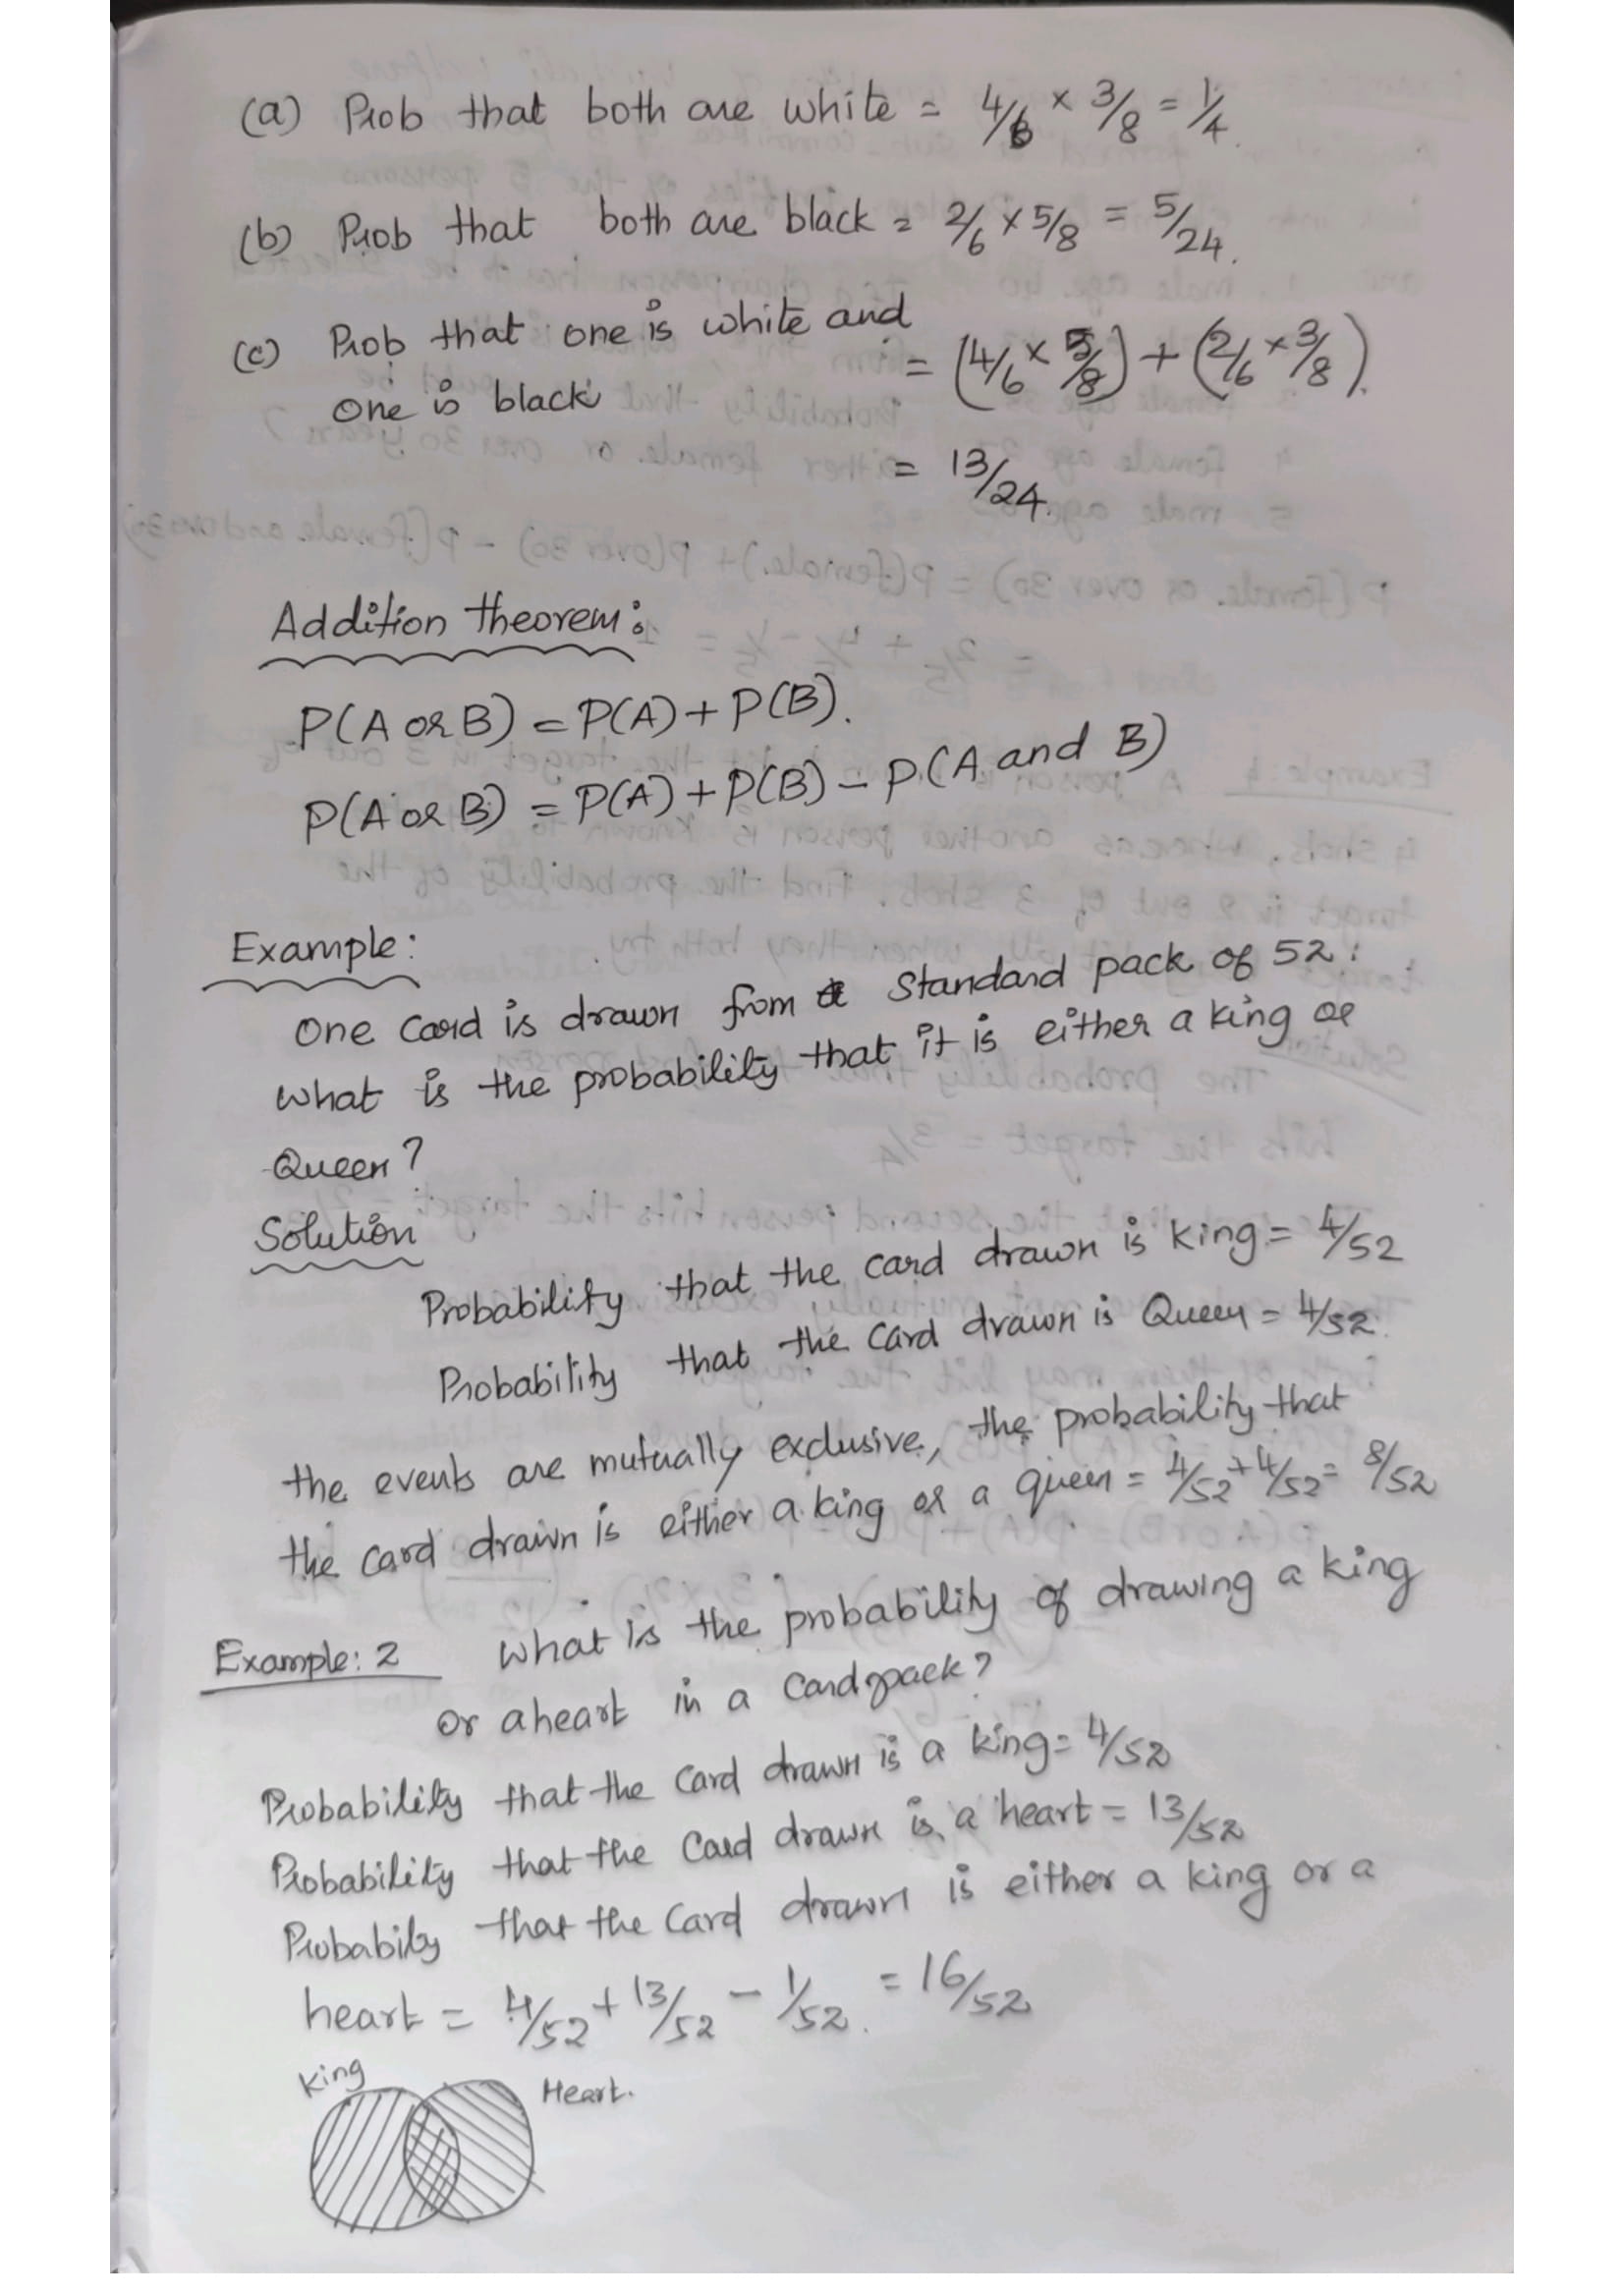 (a) Prob that both are white = 4/6 × 3/8 = 1/4.
(b) Prob that both are black = 2/6 × 5/8 = 5/24.
(c) Prob that one is white and
one is black = (4/6 × 5/8) + (2/6 × 3/8).
= 13/24.
Addition theorem:
P(A or B) = P(A) + P(B).
P(A or B) = P(A) + P(B) - P(A and B)
Example:
One Card is drawn from a Standard pack of 52:
What is the probability that it is either a king or
Queen?
Solution
Probability that the card drawn is king = 4/52
Probability that the Card drawn is Queen = 4/52.
the events are mutually exclusive, the probability that
the card drawn is either a king or a queen = 4/52 + 4/52 = 8/52
Example: 2 What is the probability of drawing a king
or a heart in a Card pack?
Probability that the Card drawn is a king = 4/52
Probability that the Card drawn is a heart = 13/52
Probabiby that the Card drawn is either a king or a
heart = 4/52 + 13/52 - 1/52. = 16/52
King Heart.